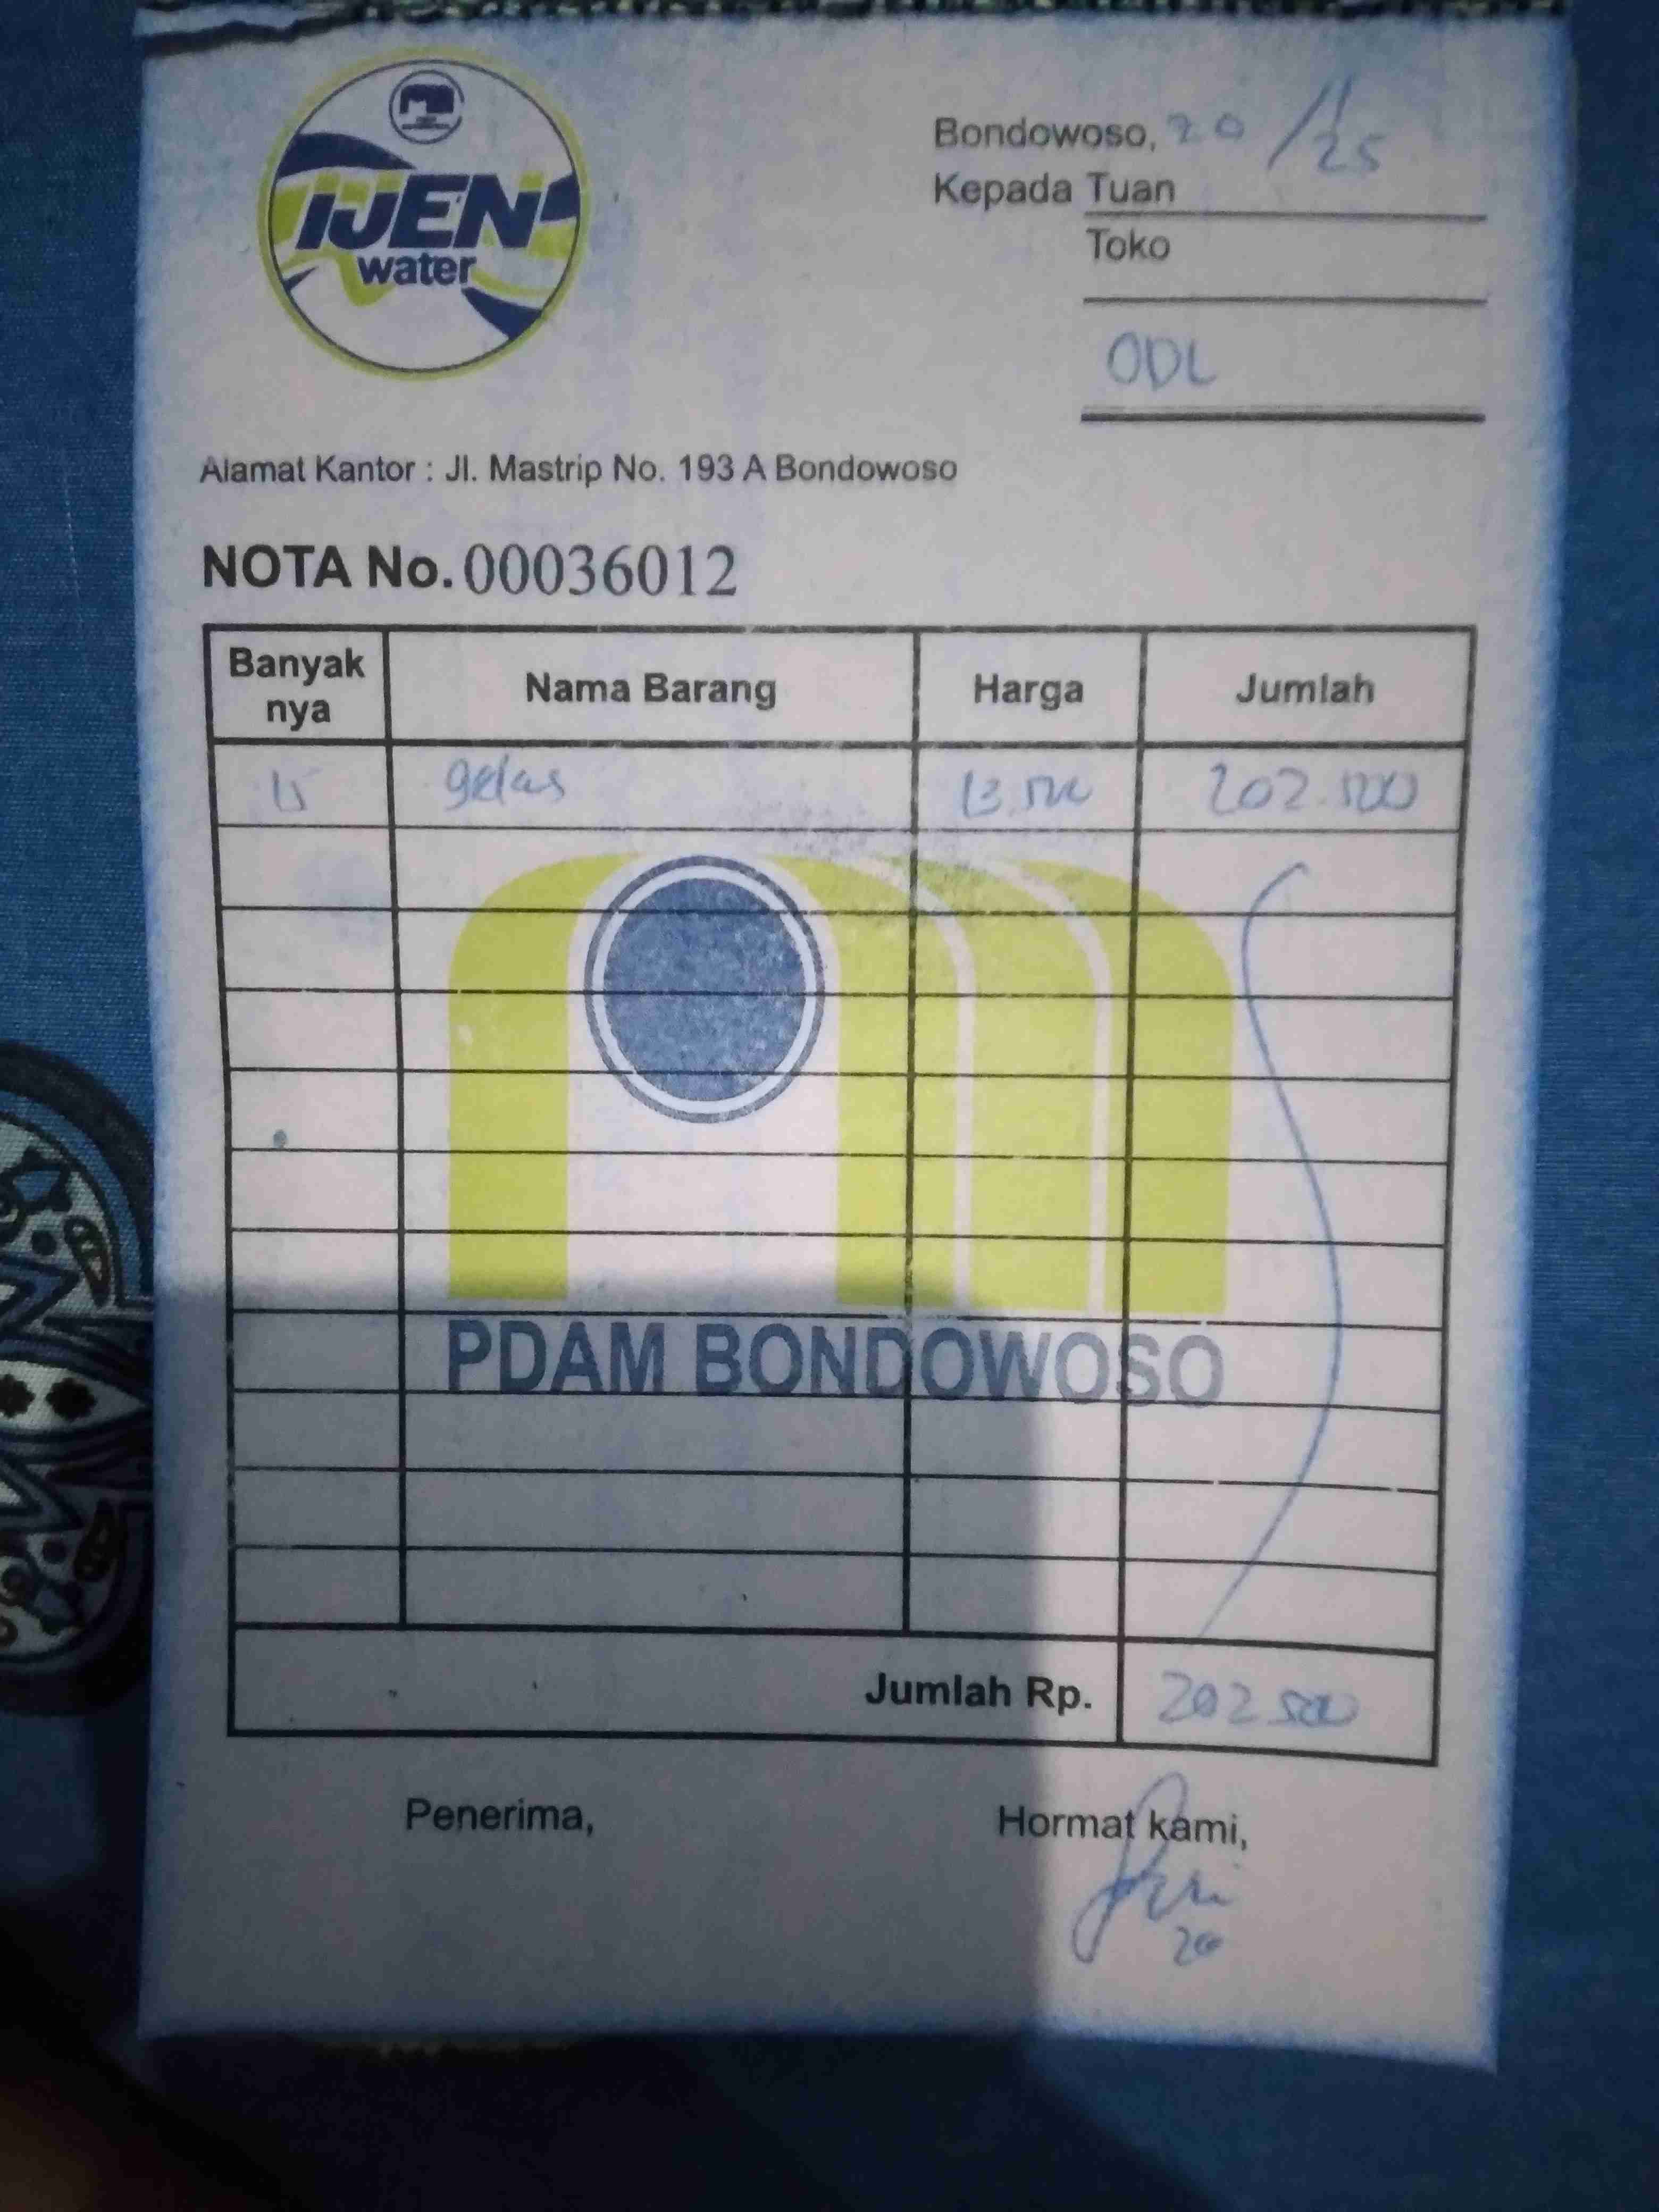 IJEN
water
Bondowoso, 20 / 11 25
Kepada Tuan
Toko
ODL
Alamat Kantor : Jl. Mastrip No. 193 A Bondowoso
NOTA No. 00036012
Banyak nya Nama Barang Harga Jumlah
15 gelas 13.500 202.500
PDAM BONDOWOSO
Jumlah Rp. 202 500
Penerima, Hormat kami,